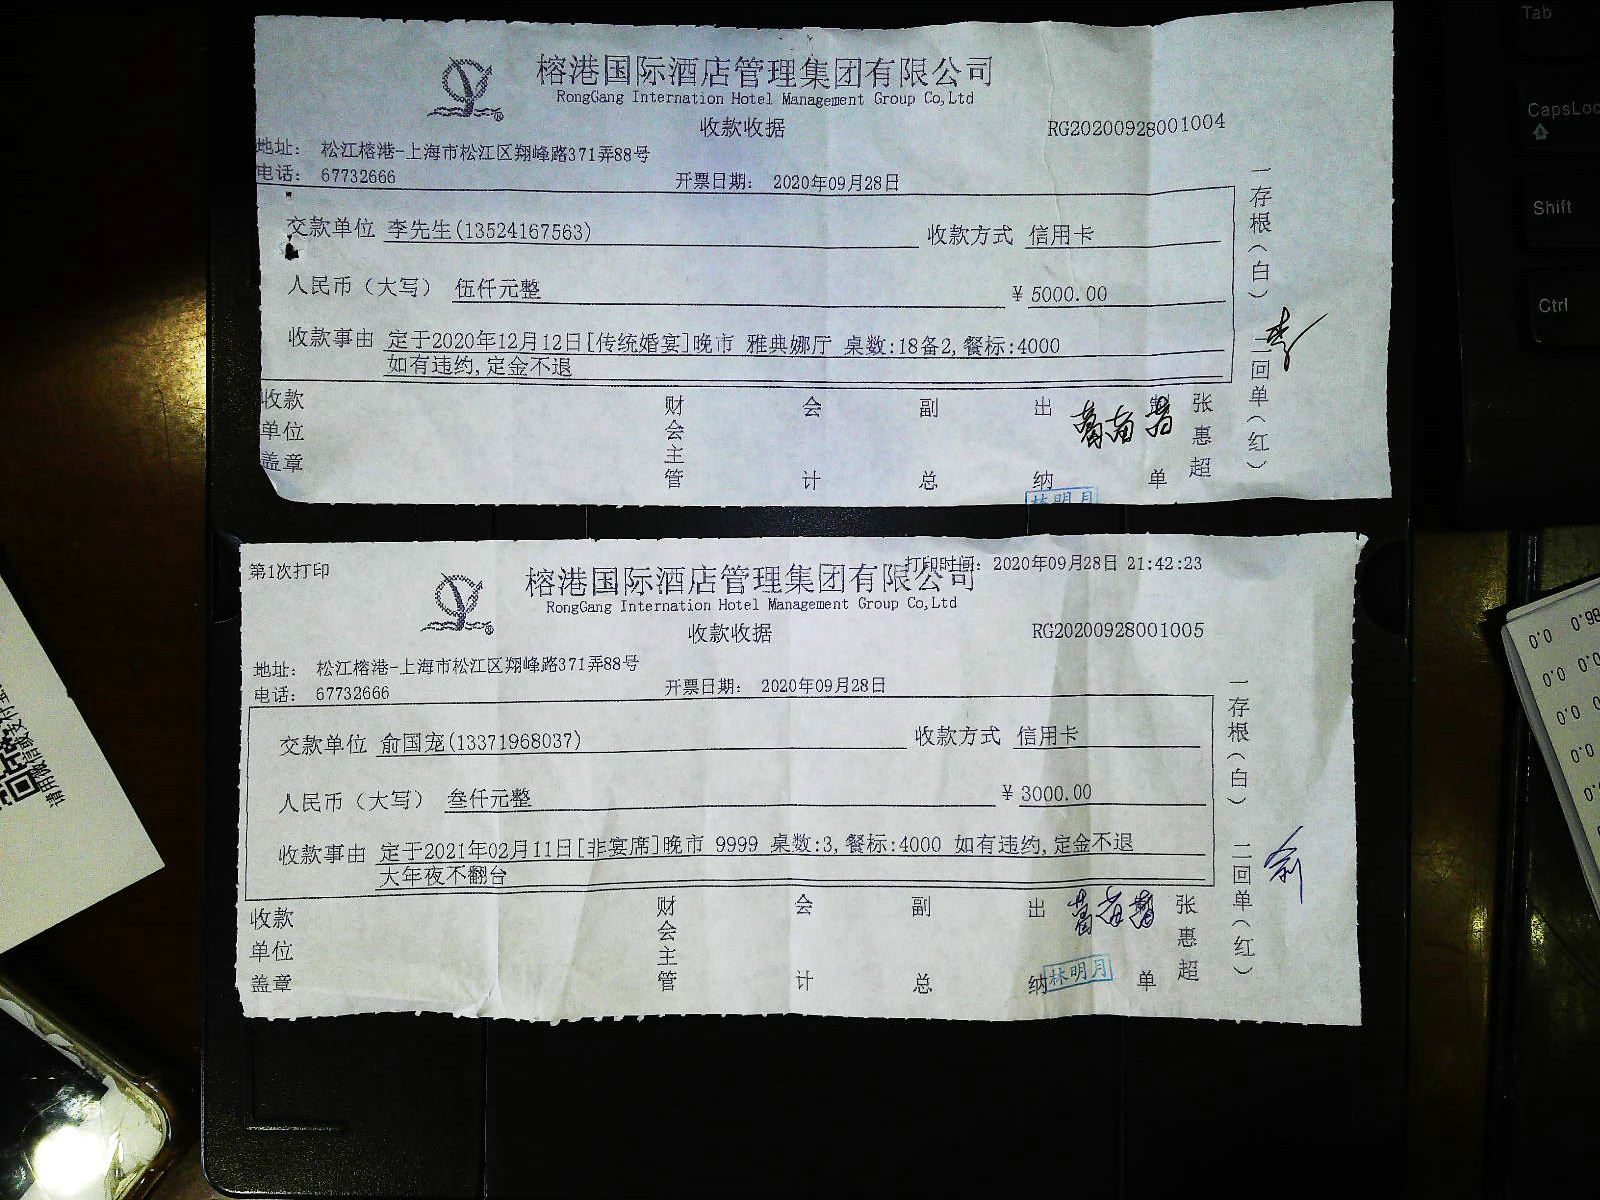 榕港国际酒店管理集团有限公司
RongGang Internation Hotel Management Group Co,Ltd
收款收据
RG20200928001004
地址： 松江榕港-上海市松江区翔峰路371弄88号
电话： 67732666
开票日期： 2020年09月28日
交款单位 李先生(13524167563)
收款方式 信用卡
人民币（大写） 伍仟元整
¥ 5000.00
收款事由 定于2020年12月12日[传统婚宴]晚市 雅典娜厅 桌数:18备2,餐标:4000
如有违约,定金不退
收款单位盖章
财会主管
会计
副总
出纳
单
张惠超
林明月
一存根（白）
二回单（红）
李
第1次打印
打印时间： 2020年09月28日 21:42:23
榕港国际酒店管理集团有限公司
RongGang Internation Hotel Management Group Co,Ltd
收款收据
RG20200928001005
地址： 松江榕港-上海市松江区翔峰路371弄88号
电话： 67732666
开票日期： 2020年09月28日
交款单位 俞国宠(13371968037)
收款方式 信用卡
人民币（大写） 叁仟元整
¥ 3000.00
收款事由 定于2021年02月11日[非宴席]晚市 9999 桌数:3,餐标:4000 如有违约,定金不退
大年夜不翻台
收款单位盖章
财会主管
会计
副总
出纳
单
张惠超
林明月
一存根（白）
二回单（红）
俞
Tab
CapsLoc
Shift
Ctrl